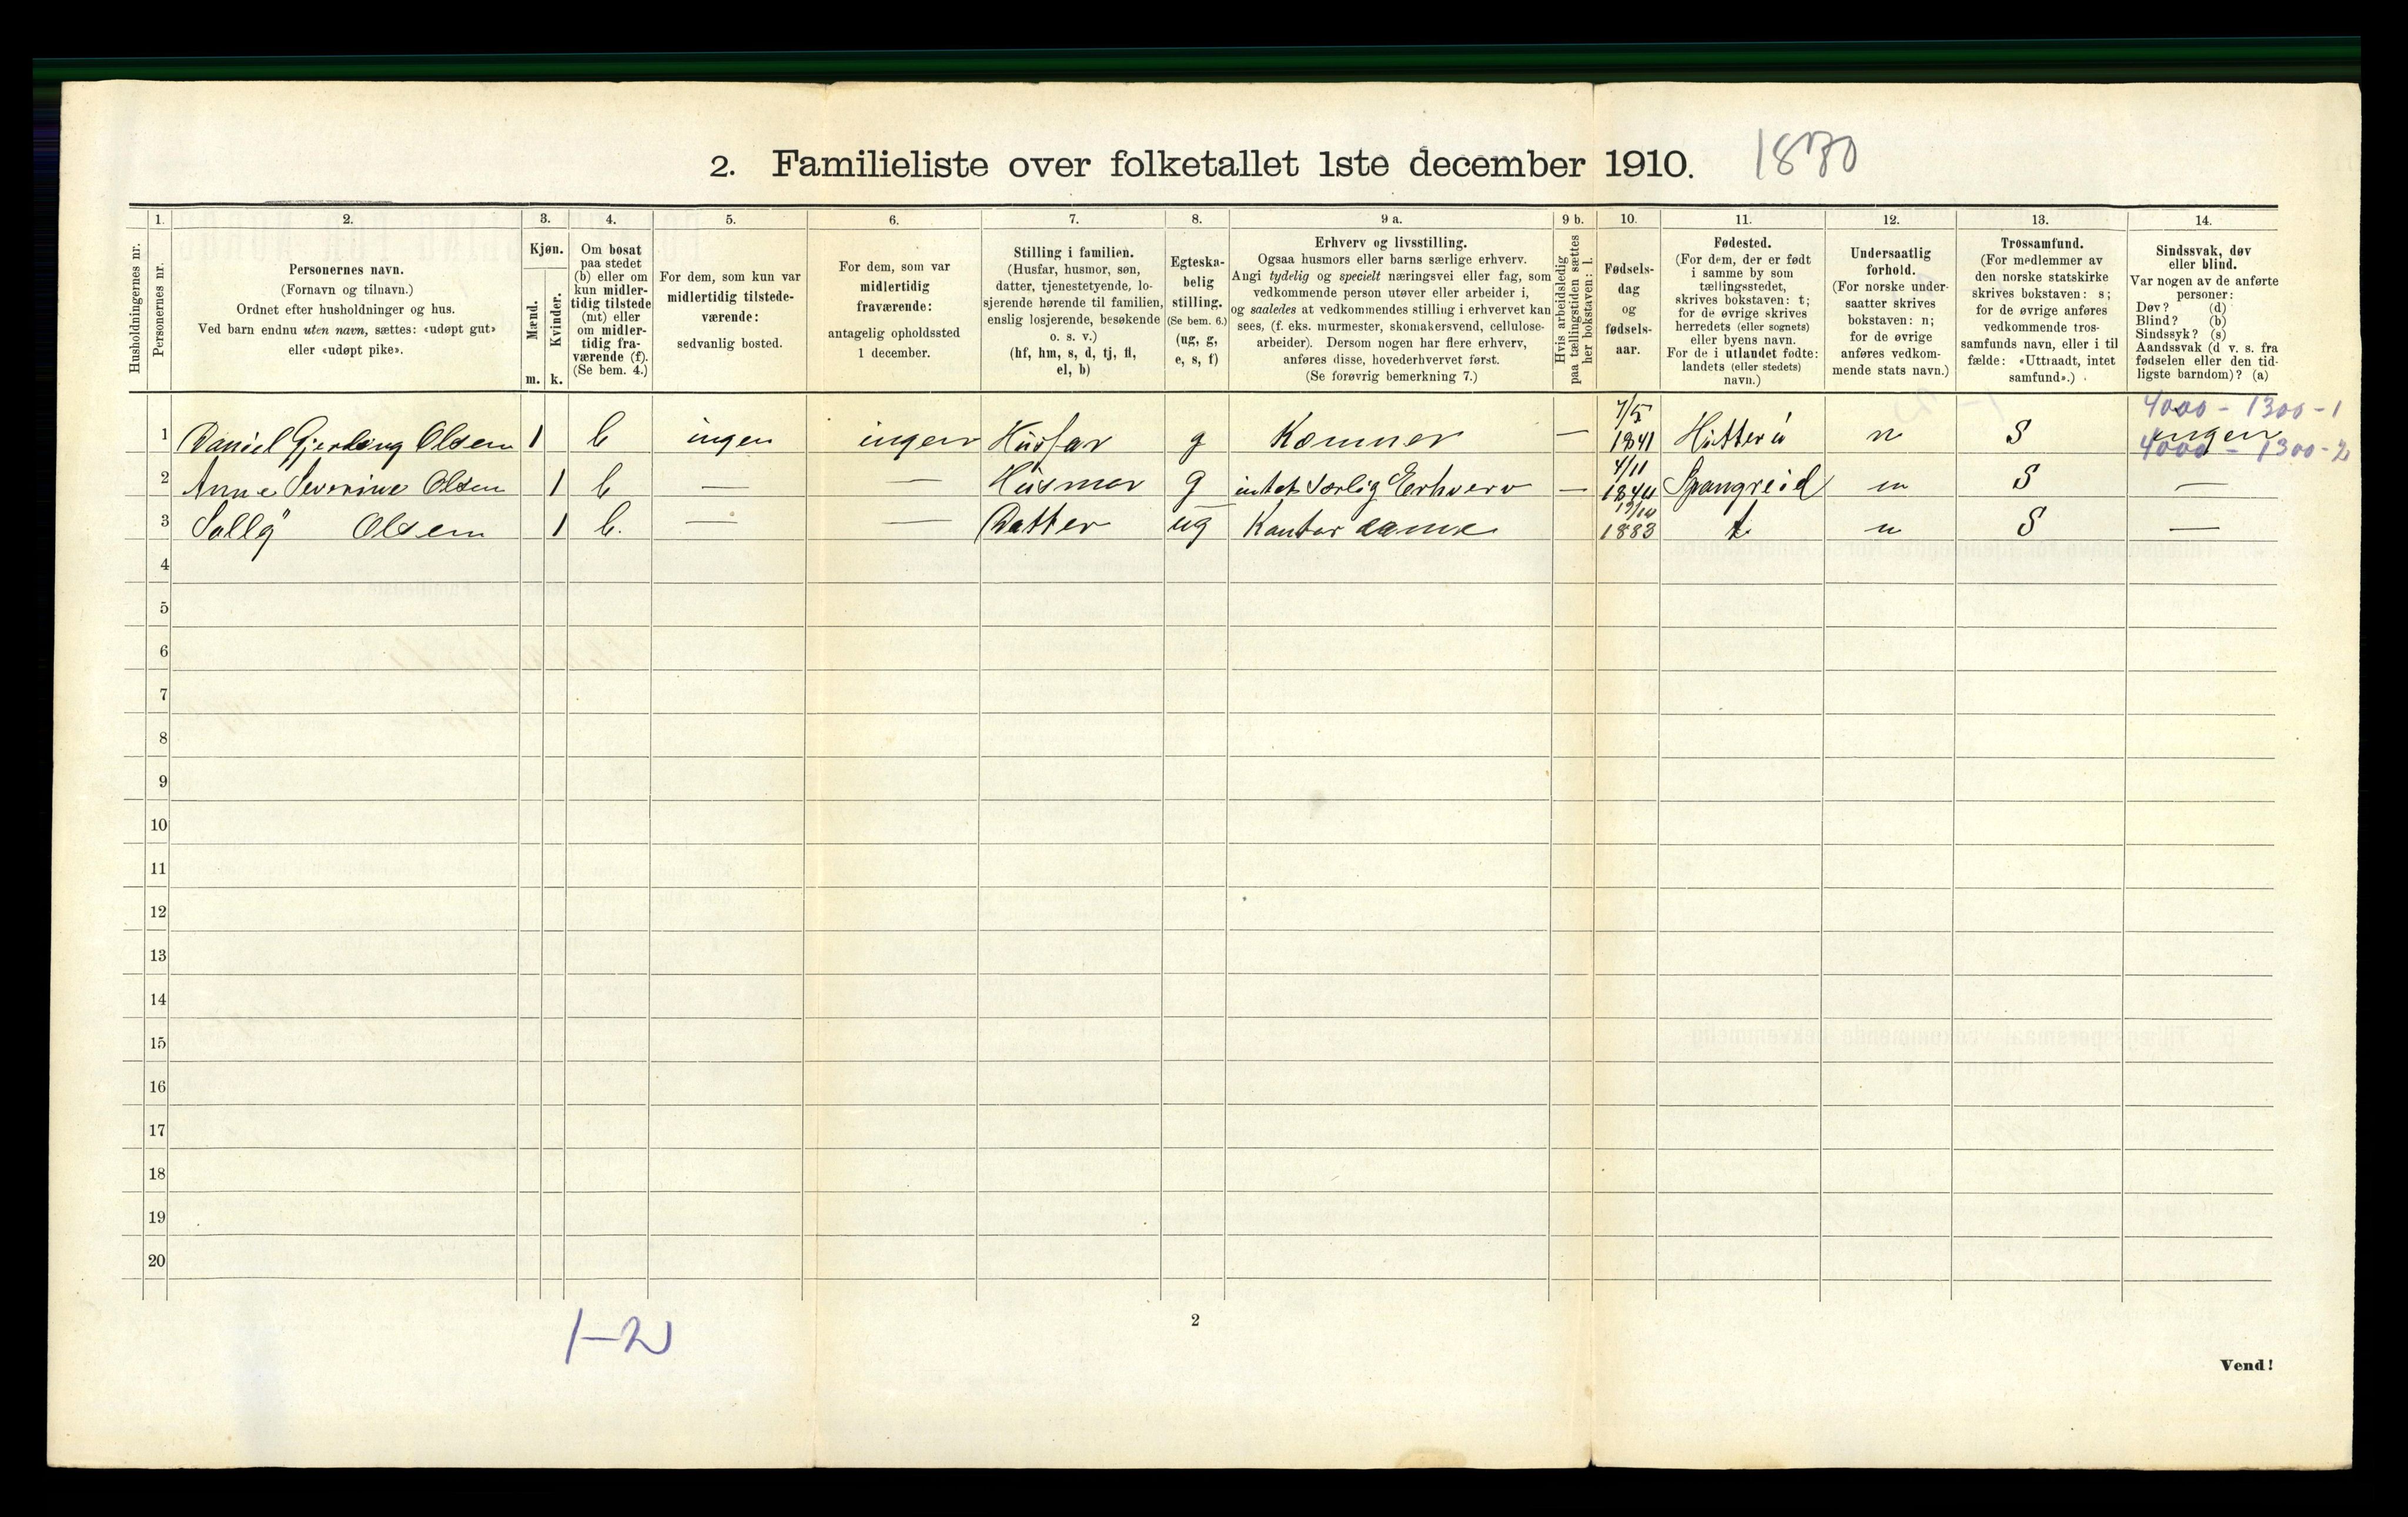 2. Familieliste over folketallet 1ste december 1910. 1880
1. 2. 3. 4. 5. 6. 7. 8. 9 a. 9 b. 10. 11. 12. 13. 14.
Husholdningernes nr.
Personernes nr.
Personernes navn.
(Fornavn og tilnavn.)
Ordnet efter husholdninger og hus.
Ved barn endnu uten navn, sættes: «udøpt gut»
eller «udøpt pike».
Kjøn.
Mænd.
Kvinder.
m. k.
Om bosat
paa stedet
(b) eller om
kun midler-
tidig tilstede
(mt) eller
om midler-
tidig fra-
værende (f).
(Se bem. 4.)
For dem, som kun var
midlertidig tilstede-
værende:
sedvanlig bosted.
For dem, som var
midlertidig
fraværende:
antagelig opholdssted
1 december.
Stilling i familien.
(Husfar, husmor, søn,
datter, tjenestetyende, lo-
sjerende hørende til familien,
enslig losjerende, besøkende
o. s. v.)
(hf, hm, s, d, tj, fl,
el, b)
Egteska-
belig
stilling.
(Se bem. 6.)
(ug, g,
e, s, f)
Erhverv og livsstilling.
Ogsaa husmors eller barns særlige erhverv.
Angi tydelig og specielt næringsvei eller fag, som
vedkommende person utøver eller arbeider i,
og saaledes at vedkommendes stilling i erhvervet kan
sees, (f. eks. murmester, skomakersvend, cellulose-
arbeider). Dersom nogen har flere erhverv,
anføres disse, hovederhvervet først.
(Se forøvrig bemerkning 7.)
Hvis arbeidsledig
paa tællingstiden sættes
her bokstaven: l.
Fødsels-
dag
og
fødsels-
aar.
Fødested.
(For dem, der er født
i samme by som
tællingsstedet,
skrives bokstaven: t;
for de øvrige skrives
herredets (eller sognets)
eller byens navn.
For de i utlandet fødte:
landets (eller stedets)
navn.)
Undersaatlig
forhold.
(For norske under-
saatter skrives
bokstaven: n;
for de øvrige
anføres vedkom-
mende stats navn.)
Trossamfund.
(For medlemmer av
den norske statskirke
skrives bokstaven: s;
for de øvrige anføres
vedkommende tros-
samfunds navn, eller i til
fælde: «Uttraadt, intet
samfund».)
Sindssvak, døv
eller blind.
Var nogen av de anførte
personer:
Døv? (d)
Blind? (b)
Sindssyk? (s)
Aandssvak (d v. s. fra
fødselen eller den tid-
ligste barndom)? (a)
7/5 4000 - 1300 - 1
1 Daniel Gjertsing Olsen 1 b ingen ingen Husfar g Kæmner — 1841 Hitterö n S ingen
4/11 4000 - 1300 - 2
2 Anne Severine Olsen 1 b — — Husmor g intet særlig Eerhverv — 1844 Spangreid n S —
3 Sally Olsen 1 b. — — Datter ug Kontordame 1883 t n S —
4
5
6
7
8
9
10
11
12
13
14
15
16
17
18
19
20
1-2
2
Vend!